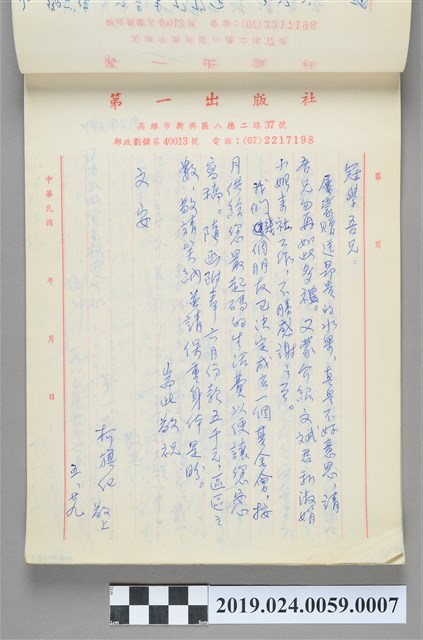 第一出版社
高雄市新興區八德二路37號
郵政劃撥第40013號 電話:(07)2217198
第 頁
冠學吾兄:
屢蒙贈送昂貴的水果,真是不好意思,請
吾兄勿再如此多禮。又蒙介紹文斌君和淑娟
小姐來社工作,不勝感謝之至。
我們幾個朋友已決定成立一個基金會,按
月供給您最起碼的生活費以便讓您安心
寫稿。隨函附奉六月份款五千元,區區之
數,敬請笑納並請保重身体是盼。
耑此敬祝
文安
柯旗化敬上
五、廿九
中華民國 年 月 日
2019.024.0059.0007